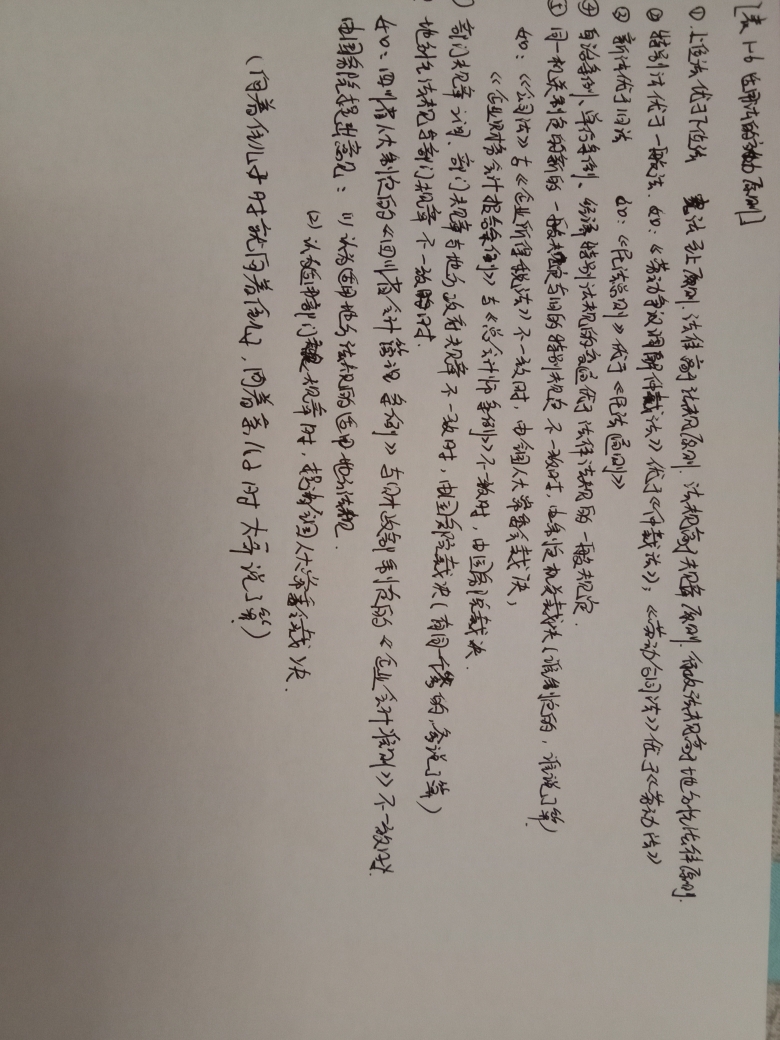 [表1-6 适用法的效力原则]
① 上位法优于下位法 宪法至上原则.法律高于法规原则.法规高于规章原则.行政法规高于地方性法律原则.
② 特别法优于一般法.如:《劳动争议调解仲裁法》优于《仲裁法》;《劳动合同法》优于《劳动法》
③ 新法优于旧法 如:《民法总则》优于《民法通则》
④ 自治条例、单行条例、经济特别法规的变通优于法律法规的一般规定.
⑤ 同一机关制定的新的一般规定与旧的特别规定不一致时,由制定机关裁决(谁制定的,谁说了算)
如:《公司法》与《企业所得税法》不一致时,由全国人大常委会裁决,
《企业财务会计报告条例》与《总会计师条例》不一致时,由国务院裁决.
部门规章之间、部门规章与地方政府规章不一致时,由国务院裁决(有同一个爹的,爹说了算)
地方性法规与部门规章不一致时.
如:四川省人大制定的《四川省会计管理条例》与财政部制定的《企业会计准则》不一致时.
由国务院提出意见:⑴ 认为适用地方法规的适用地方法规.
⑵ 认为适用部门规章时,提请全国人大常委会裁决.
(向着侄儿子时就向着侄儿,向着亲儿子时大哥说了算)